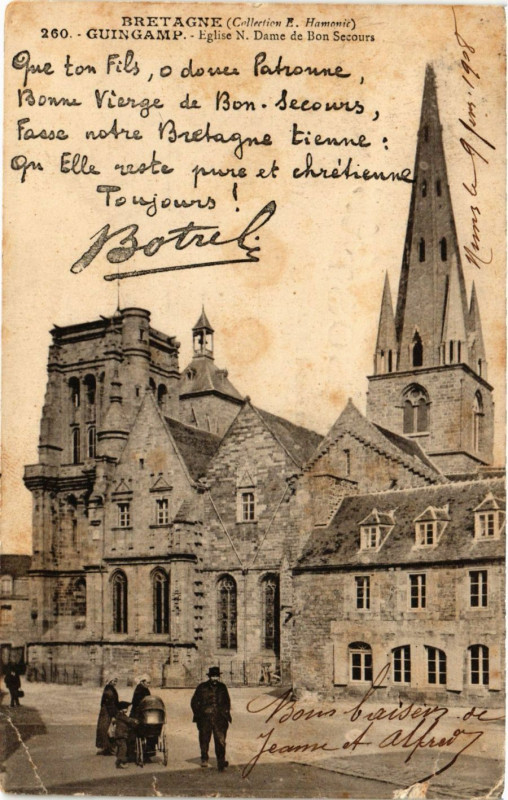 BRETAGNE (Collection E. Hamonic)
260. - GUINGAMP. - Eglise N. Dame de Bon Secours
Que ton Fils, o douce Patronne,
Bonne Vierge de Bon-Secours,
Fasse notre Bretagne tienne:
Qu'Elle reste pure et chrétienne
Toujours!
Botrel.
le 9 juin 1908
Bons baisers de
Jeanne et Alfred